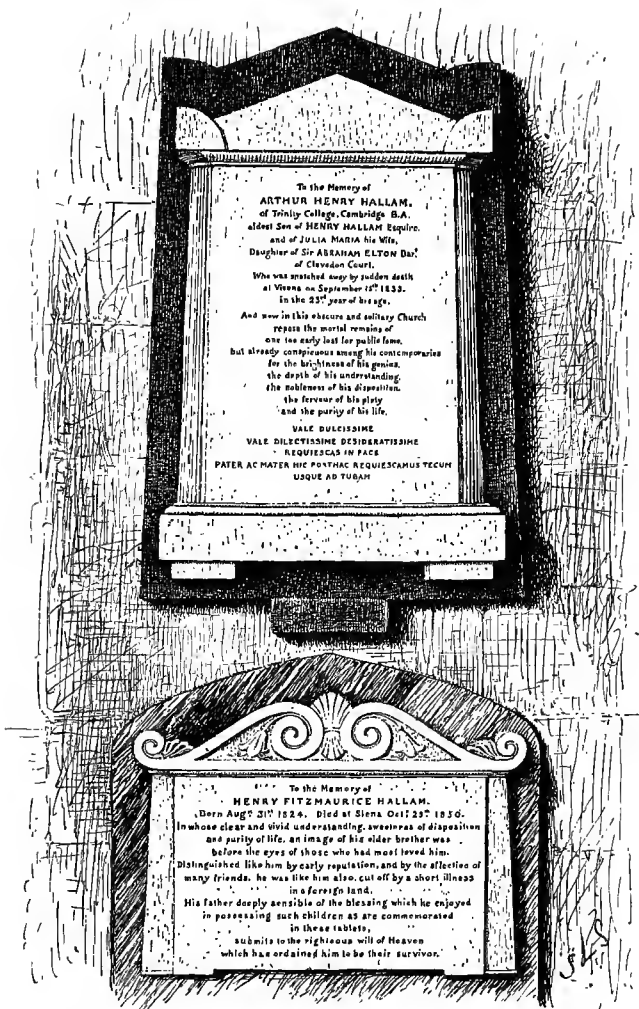 To the Memory of
ARTHUR HENRY HALLAM,
of Trinity College, Cambridge B.A.
eldest Son of HENRY HALLAM Esquire,
and of JULIA MARIA his Wife,
Daughter of Sir ABRAHAM ELTON Bart
of Clevedon Court,
Who was snatched away by sudden death
at Vienna on September 15th 1833.
in the 23rd year of his age.
And now in this obscure and solitary Church
repose the mortal remains of
one too early lost for public fame,
but already conspicuous among his contemporaries
for the brightness of his genius,
the depth of his understanding,
the nobleness of his disposition,
the fervour of his piety
and the purity of his life.
VALE DULCISSIME
VALE DILECTISSIME DESIDERATISSIME
REQUIESCAS IN PACE
PATER AC MATER HIC POSTHAC REQUIESCAMUS TECUM
USQUE AD TUBAM
To the Memory of
HENRY FITZMAURICE HALLAM.
Born Augst 31st 1824. Died at Siena Octr 25th 1850.
In whose clear and vivid understanding, sweetness of disposition
and purity of life, an image of his elder brother was
before the eyes of those who had most loved him.
Distinguished like him by early reputation, and by the affection of
many friends, he was like him also, cut off by a short illness
in a foreign land.
His father deeply sensible of the blessing which he enjoyed
in possessing such children as are commemorated
in these tablets,
submits to the righteous will of Heaven
which has ordained him to be their survivor.